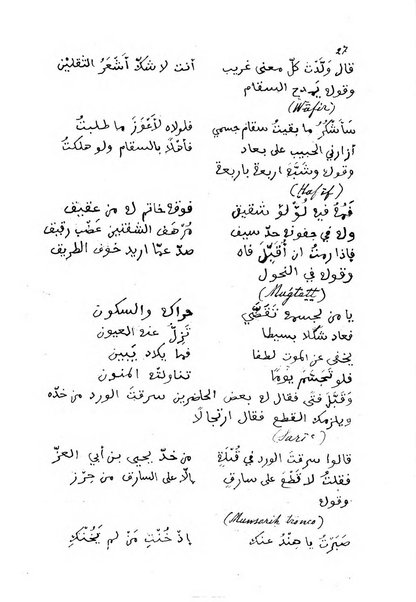 27
قال ولّدت كلّ معنى غريب انت لا شكّ أشعرُ الثقلين
وقوله يمدح السقام
(Wāfir)
سأشكُرُ ما بقيتُ سقام جسمي فلولاه لأعوزَ ما طلبتُ
أزارني الحبيب على بعاد فأهلًا بالسقام ولو هلكتُ
وقوله وشبّه اربعة باربعة
(Ḫafīf)
فمهُ فيه لؤلؤ شقيق فوقه خاتم له من عقيق
وله في جفونه حدّ سيف مُرهَف الشفتين عضْب رقيق
فاذا رمتُ ان أقبّل فاه صدّ عمّا اريد خوف الطريق
وقوله في النحول
(Muǧtett)
يا من لجسمه تقضّي حراكه والسكون
فعاد شكلًا بسيطا تزلّ عنه العيون
يخفى عن الموت لطفا فما يكاد يبين
فلو تجسّم يومًا تناولته المنون
وقبّل فتى فقال له بعض الحاضرين سرقت الورد من خدّه
ويلزمك القطع فقال ارتجالًا
(Sarīʿ)
قالوا سرقتَ الورد في قُبلةٍ من خدّ يحيى بن أبي العزّ
فقلتُ لا قَطعَ على سارق الّا على السارق من حِرْز
وقوله
(Munsariḥ tronco)
صبرتُ يا هندُ عنكِ إذ خُنتِ مَن لم يخُنكِ